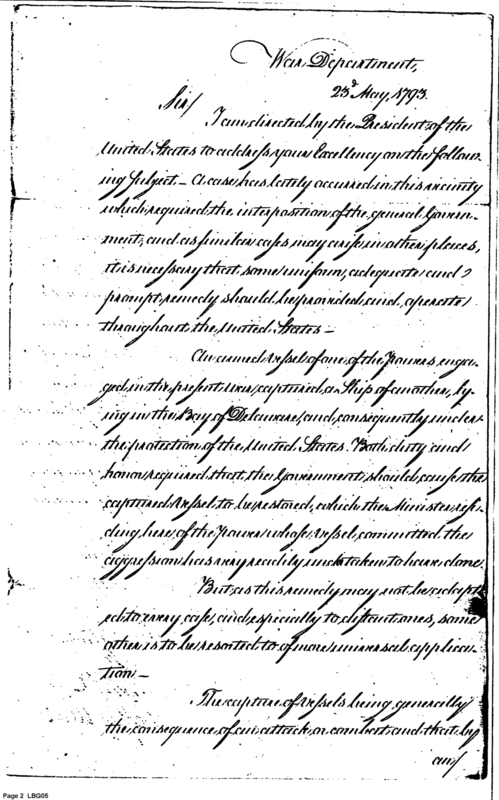 War Department,
23d May, 1793.
Sir/
I am directed by the President of the
United States to address your Excellency on the follow-
ing subject. — A case has lately occurred in this vicinity
which required the interposition of the general Govern-
ment, and as similar cases may arise in other places,
it is necessary that some uniform, adequate and
prompt remedy should be provided, and operate
throughout the United States —
An armed Vessel of one of the Powers enga-
ged in the present War, captured a Ship of another, ly-
ing in the Bay of Delaware, and consequently under
the protection of the United States. Both duty and
honor required that the Government should cause the
captured Vessel to be restored, which the Minister resi-
ding here, of the Power whose Vessel committed the
aggression has very readily undertaken to have done.
But as this remedy may not be adapt
ed to every case, and especially to distant ones, some
other is to be resorted to of more universal applica-
tion —
The capture of Vessels being generally
the consequence of an attack, or combat and that by
an/
Page 2 LBG05